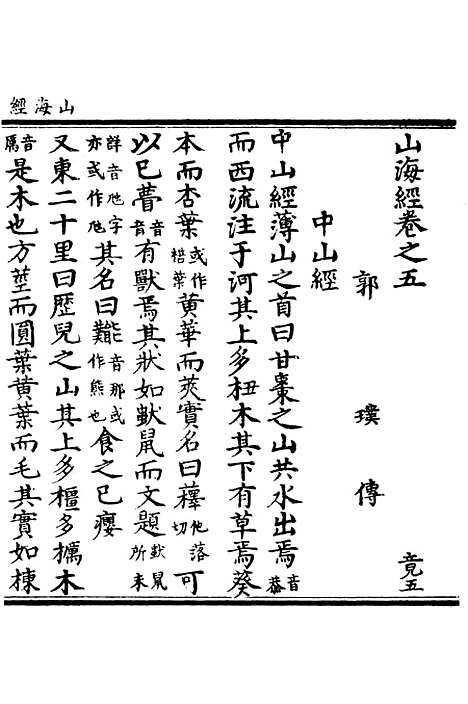 山海經
山海經卷之五
郭璞傳 竟五
中山經
中山經薄山之首曰甘棗之山共水出焉音恭
而西流注于河其上多杻木其下有草焉葵
本而杏葉或作楛葉黄華而莢實名曰蘀他落切可
以已瞢音盲有獸焉其狀如䶂鼠而文題䶂鼠所未
詳音虺字亦或作虺其名曰㔮音那或作熊也食之已癭
又東二十里曰歷兒之山其上多橿多櫔木音厲
是木也方莖而圓葉黄葉而毛其實如楝